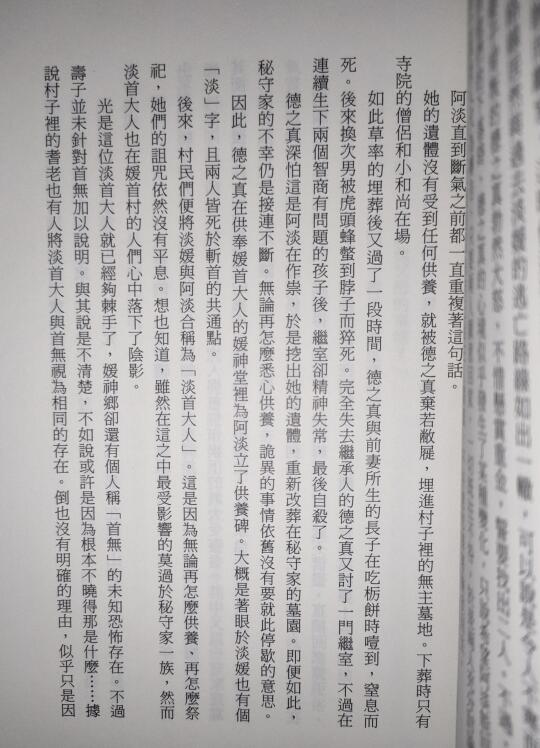 阿淡直到斷氣之前都一直重複著這句話。
她的遺體沒有受到任何供養，就被德之真棄若敝屣，埋進村子裡的無主墓地。下葬時只有
寺院的僧侶和小和尚在場。
如此草率的埋葬後又過了一段時間，德之真與前妻所生的長子在吃栃餅時噎到，窒息而
死。後來換次男被虎頭蜂螫到脖子而猝死。完全失去繼承人的德之真又討了一門繼室，不過在
連續生下兩個智商有問題的孩子後，繼室卻精神失常，最後自殺了。
德之真深怕這是阿淡在作祟，於是挖出她的遺體，重新改葬在秘守家的墓園。即便如此，
秘守家的不幸仍是接連不斷。無論再怎麼悉心供養，詭異的事情依舊沒有要就此停歇的意思。
因此，德之真在供奉媛首大人的媛神堂裡為阿淡立了供養碑。大概是著眼於淡媛也有個
「淡」字，且兩人皆死於斬首的共通點。
後來，村民們便將淡媛與阿淡合稱為「淡首大人」。這是因為無論再怎麼供養、再怎麼祭
祀，她們的詛咒依然沒有平息。想也知道，雖然在這之中最受影響的莫過於秘守家一族，然而
淡首大人也在媛首村的人們心中落下了陰影。
光是這位淡首大人就已經夠棘手了，媛神鄉卻還有個人稱「首無」的未知恐怖存在。不過
壽子並未針對首無加以說明。與其說是不清楚，不如說或許是因為根本不曉得那是什麼……據
說村子裡的耆老也有人將淡首大人與首無視為相同的存在。倒也沒有明確的理由，似乎只是因